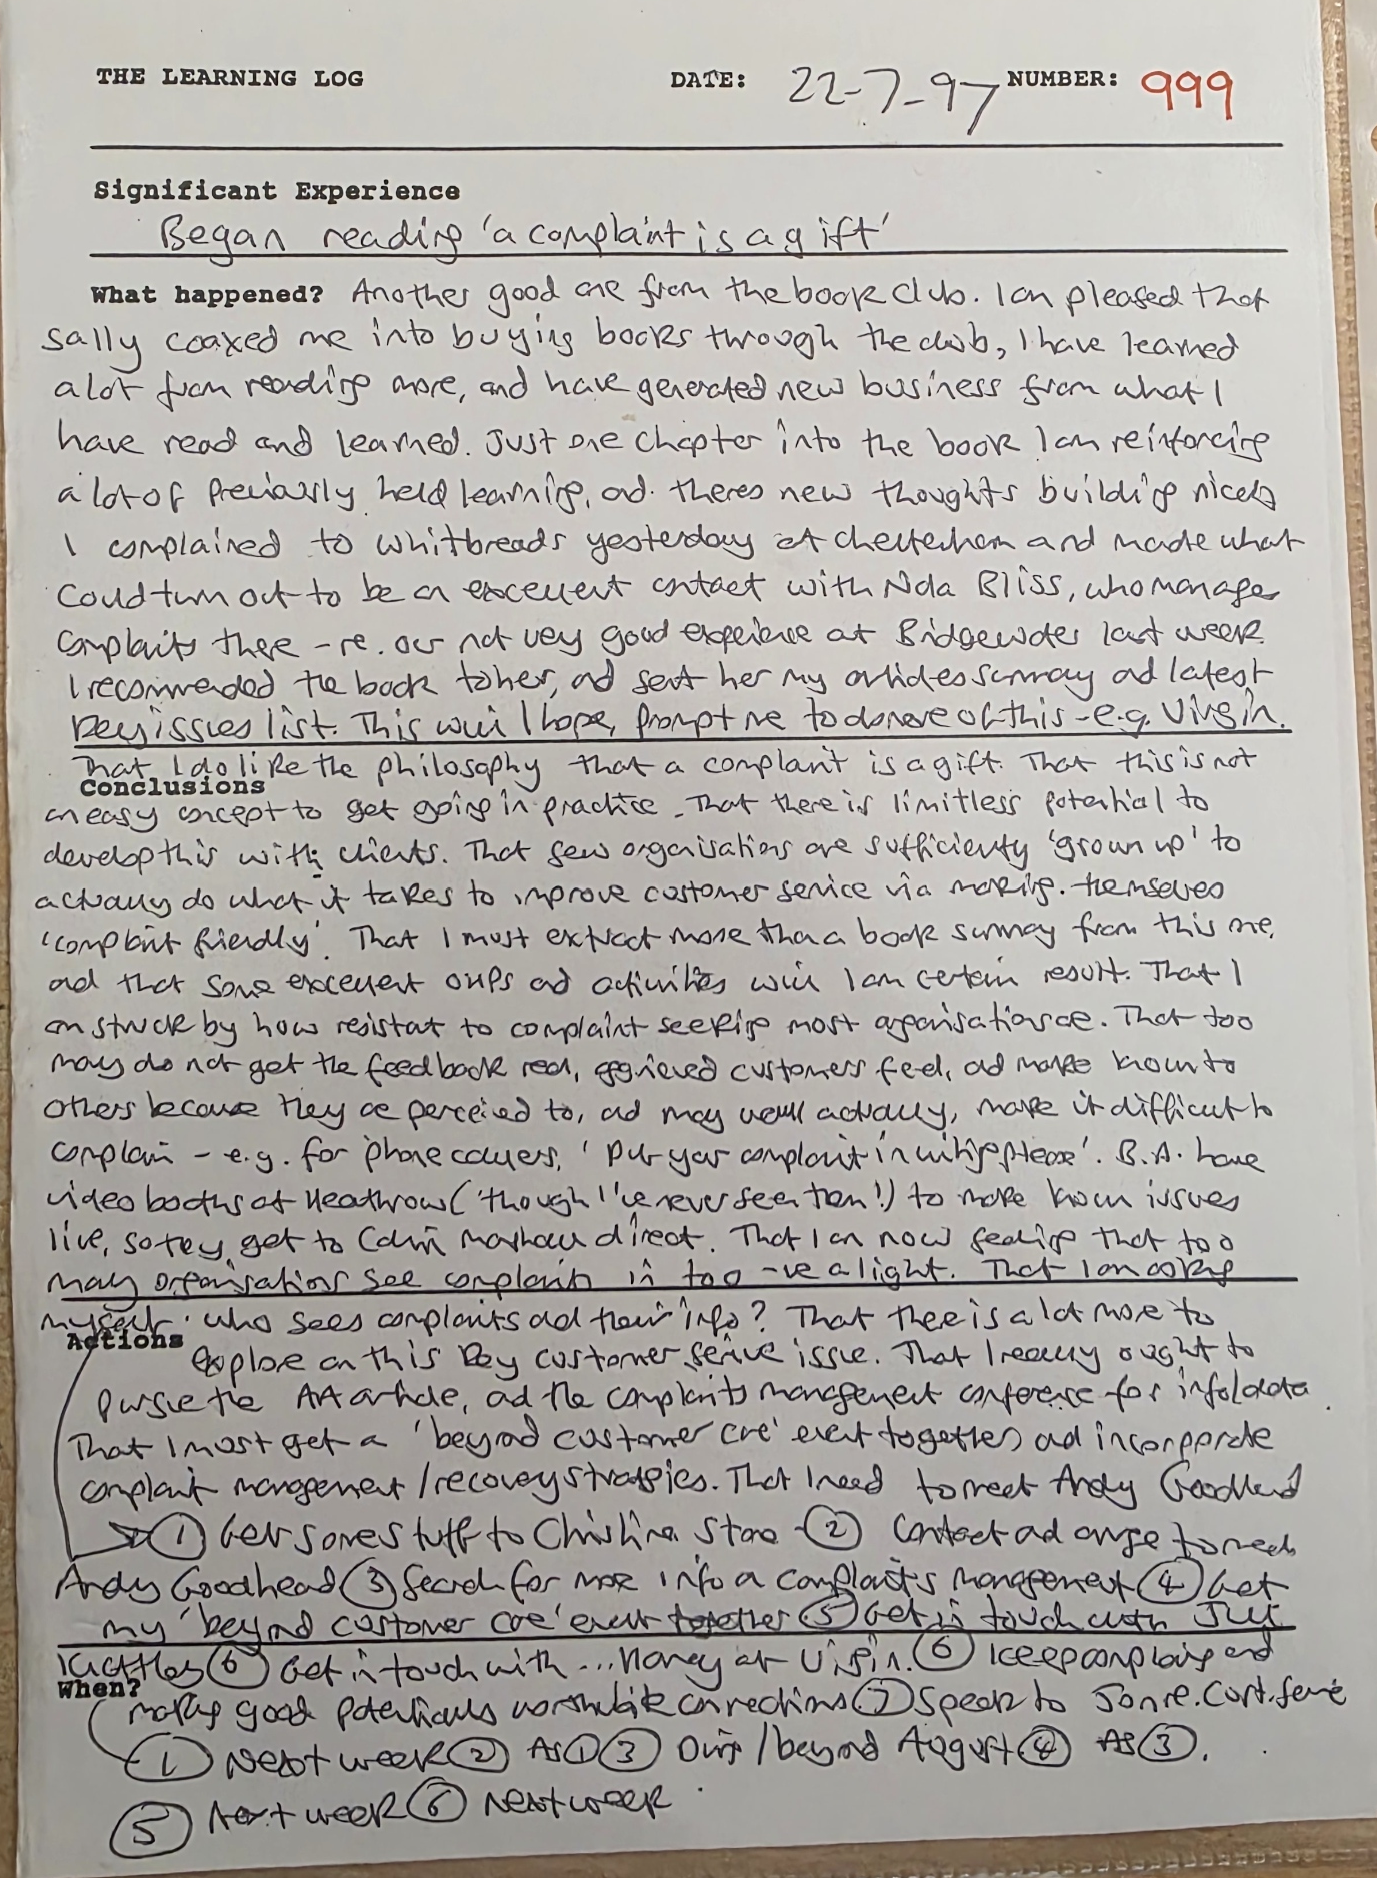 THE LEARNING LOG DATE: 22-7-97 NUMBER: 999
Significant Experience
Began reading 'a complaint is a gift'
What happened? Another good one from the book club. I am pleased that
Sally coaxed me into buying books through the club, I have learned
a lot from reading more, and have generated new business from what I
have read and learned. Just one chapter into the book I am reinforcing
a lot of previously held learning, and theres new thoughts building nicely
I complained to Whitbreads yesterday at Cheltenham and made what
could turn out to be an excellent contact with Bliss, who manages
complaints there - re. our not very good experience at Bridgewater last week.
I recommended the book to her, and sent her my articles summary and latest
key issues list. This will I hope, prompt me to do more of this - e.g. Virgin.
That I do like the philosophy that a complaint is a gift. That this is not
Conclusions
an easy concept to get going in practice. That there is limitless potential to
develop this with clients. That few organisations are sufficiently 'grown up' to
actually do what it takes to improve customer service via making themselves
'complaint friendly'. That I must extract more than a book summary from this one,
and that some excellent OHPs and activities will I am certain result. That I
am struck by how resistant to complaint seeking most organisations are. That too
many do not get the feedback real, aggrieved customers feel, and make known to
others because they are perceived to, and may well actually, make it difficult to
complain - e.g. for phone callers, 'put your complaint in writing please'. B.A. have
video booths at Heathrow ('though I've never seen them!) to make known issues
live, so they get to Colin Marshall direct. That I am now feeling that too
many organisations see complaints in too -ve a light. That I am asking
myself. who sees complaints and their info? That there is a lot more to
Actions
explore on this key customer service issue. That I really ought to
pursue the AA article, and the complaints management conference for info/data
That I must get a 'beyond customer care' event together and incorporate
complaint management/recovery strategies. That I need to meet Andy Goodhead
① Get some stuff to Christina Stone ② Contact and arrange to meet
Andy Goodhead ③ Search for more info on complaints management ④ Get
my 'beyond customer care' event together ⑤ Get in touch with
⑥ Get in touch with ... at Virgin. ⑥ Keep complaining and
When?
making good potentially worthwhile connections ⑦ Speak to Jon re. Cust. Serv
① Next week ② AS ① ③ During/beyond August ④ AS ③.
⑤ Next week ⑥ Next week